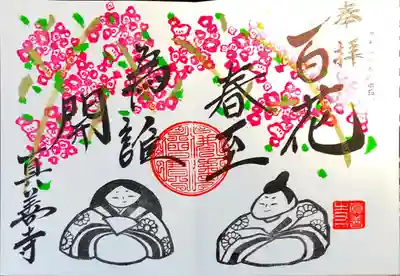 奉拝
百花
春至
為誰
開
真善寺